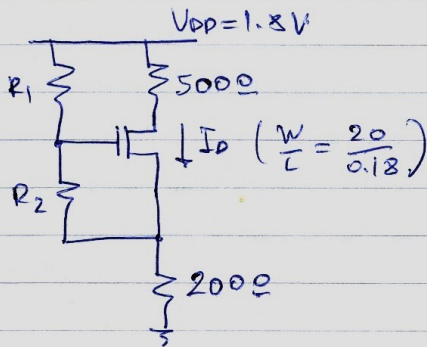 VDD=1.8V
R1
500Ω
ID (W/L = 20/0.18)
R2
200Ω